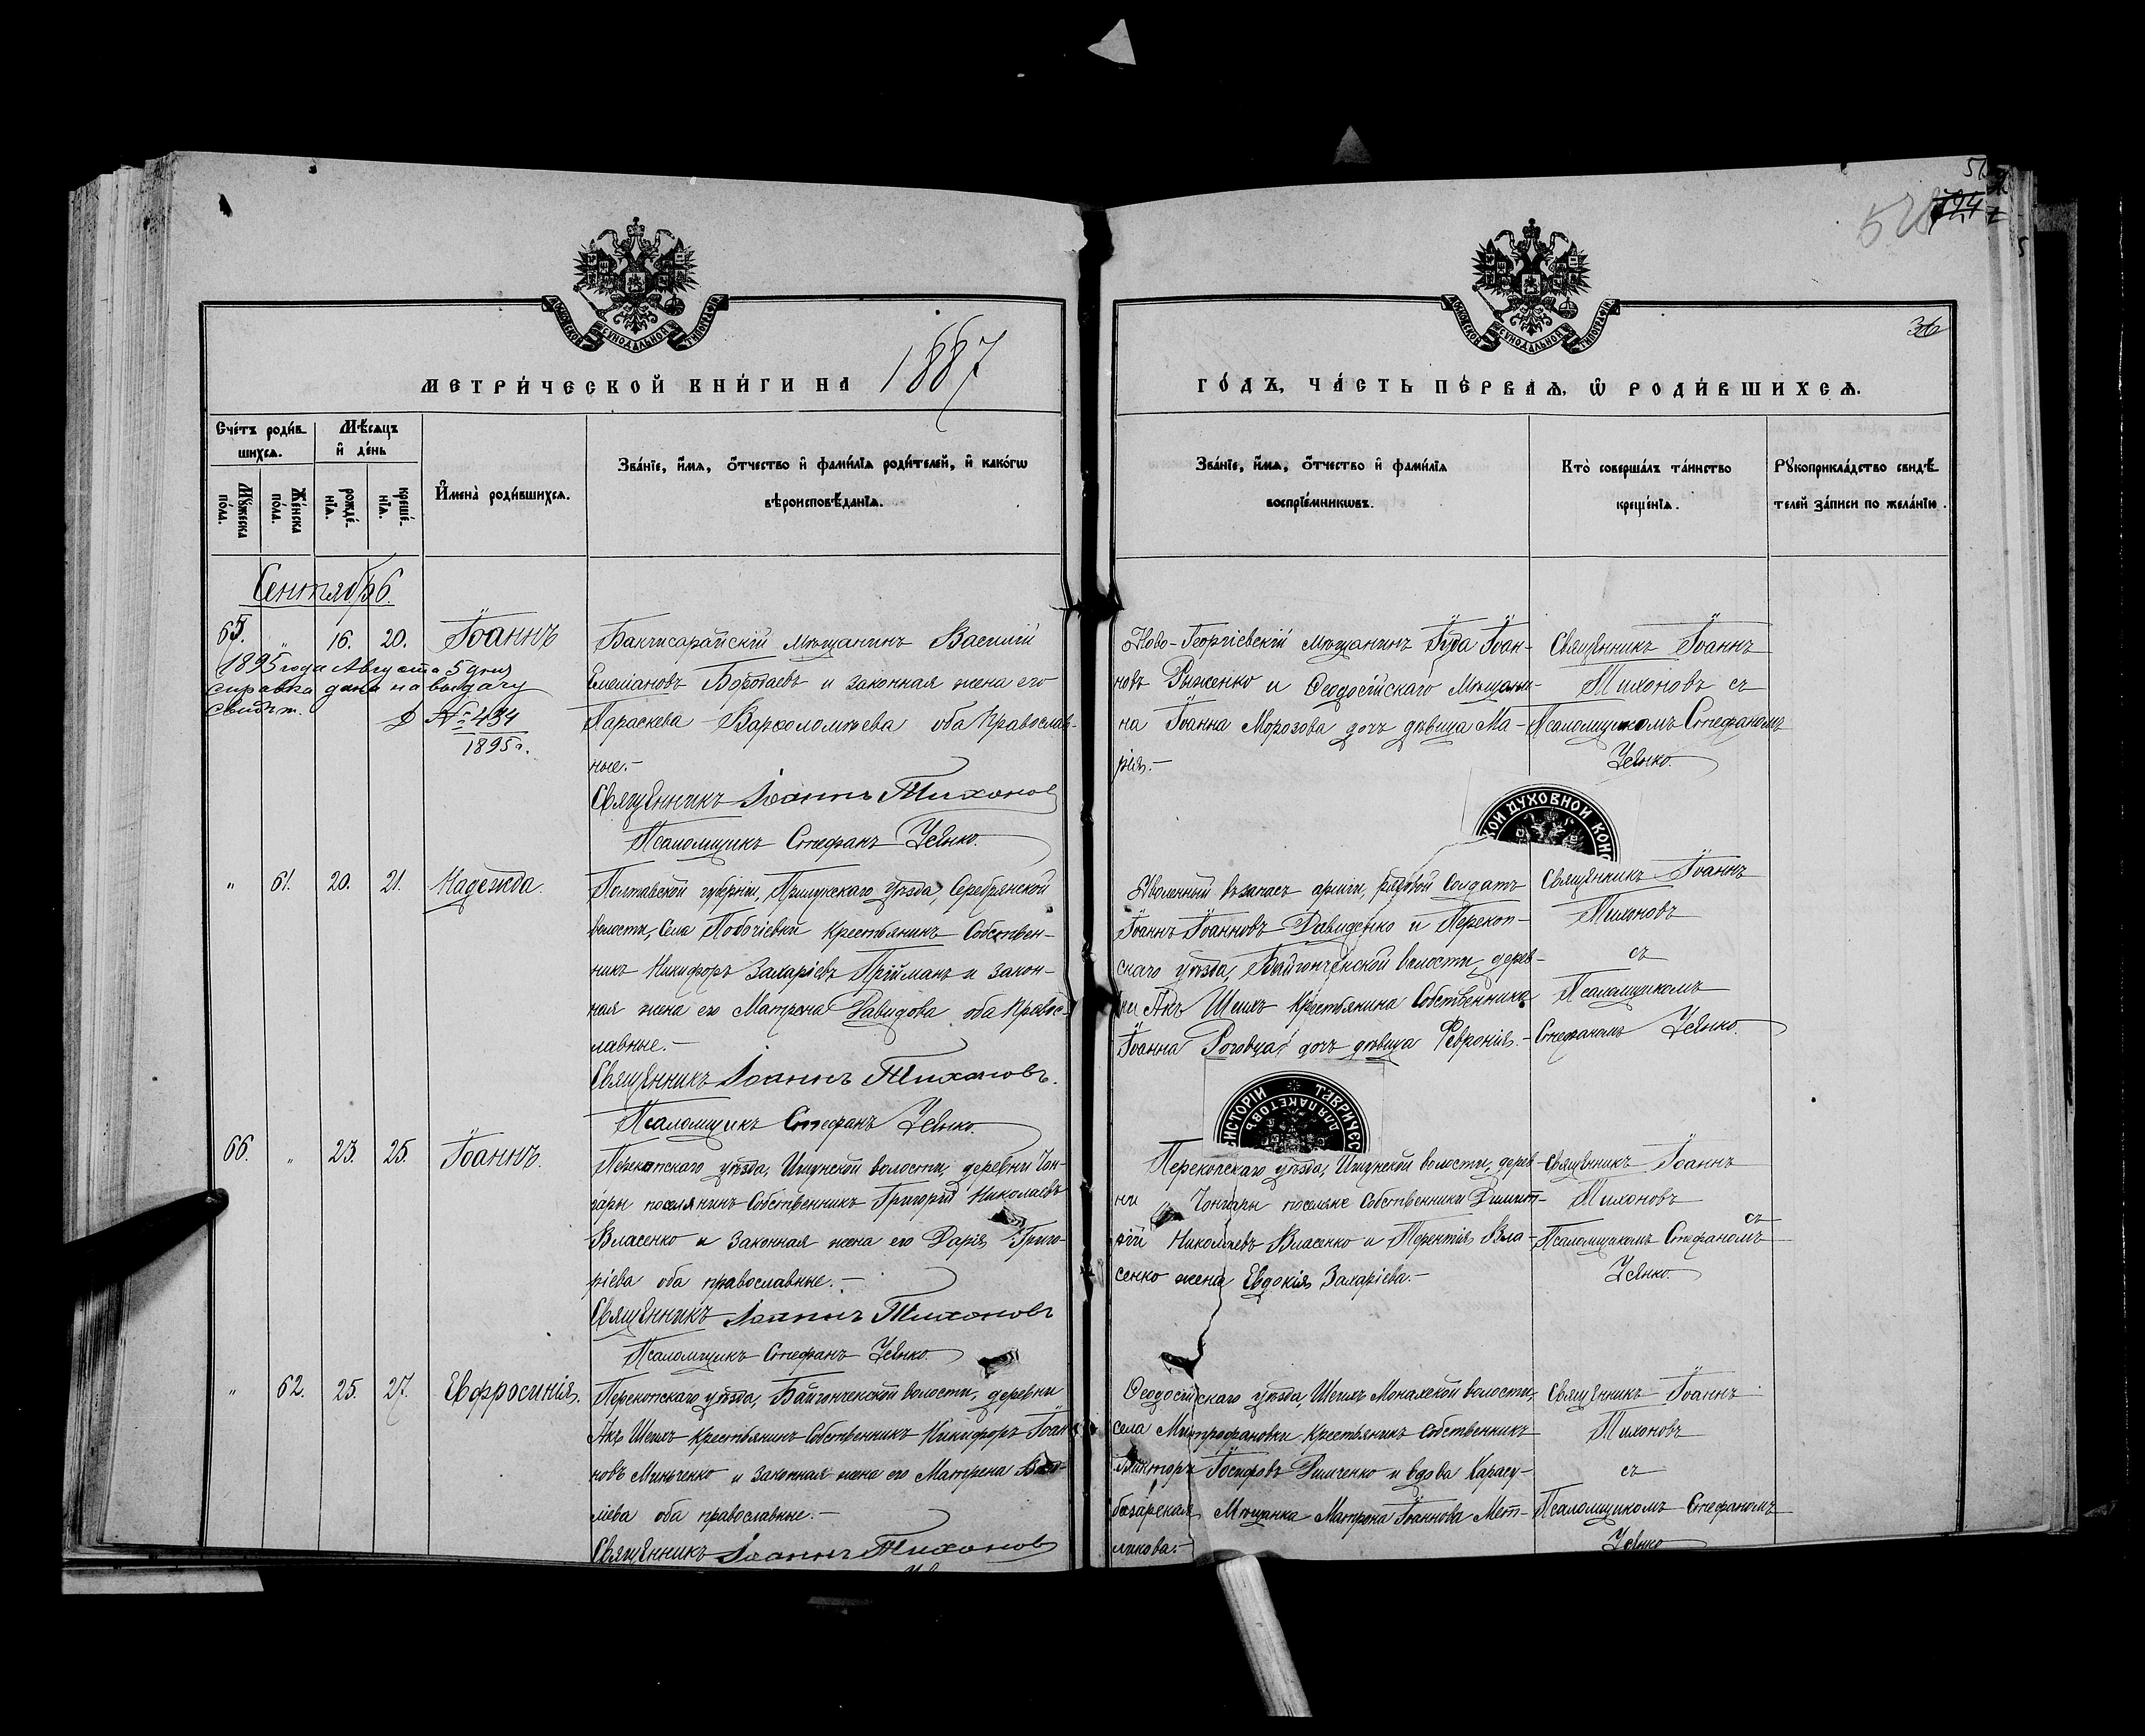 36
МОСКОВСКОЙ СѴНОДАЛЬНОЙ ТИПОГРАФІИ
МОСКОВСКОЙ СѴНОДАЛЬНОЙ ТИПОГРАФІИ
МЕТРИ́ЧЕСКОЙ КНИ́ГИ НА 1887
ГО́ДЪ, ЧА́СТЬ ПЕ́РВАѦ, Ѡ РОДИ́ВШИХСѦ.
Сче́тъ роди́в-
шихсѧ.
Мѣ́сѧцъ
и҆ де́нь
Мꙋ́жеска
по́ла.
Же́нска
по́ла.
рожде́-
нїѧ.
креще́-
нїѧ.
И҆мена̀ роди́вшихсѧ.
Зва́нїе, и҆́мѧ, ѻ҆́тчество и҆ фамѝлїѧ роди́телей, и҆ како́гѡ
вѣроисповѣ́данїѧ.
Зва́нїе, и҆́мѧ, ѻ҆́тчество и҆ фамѝлїѧ
воспрїе́мникѡвъ.
Кто̀ соверша́лъ та́инство
креще́нїѧ.
Рꙋкоприкла́дство свидѣ́-
телей за́писи по жела́нїю.
Сентябрь
65. " 16. 20. Іоаннъ
1895 года Августа 5 дня
справка дана на выдачу
свидѣт.
№ 434
1895 г.
Бахчисарайскій мѣщанинъ Василій
Емеліановъ Боротаевъ и законная жена его
Параскева Варѳоломѣева оба Православ-
ные.-
Священникъ Іоаннъ Тихоновъ
Псаломщикъ Стефанъ Усенко.
Ново-Георгіевскій мѣщанинъ Іуда Іоан-
новъ Рыженко и Ѳеодосійскаго Мѣщани-
на Іоанна Морозова дочь дѣвица Ма-
рія.-
Священникъ Іоаннъ
Тихоновъ съ
Псаломщикомъ Стефаномъ
Усенко.
КОЙ ДУХОВНОЙ КОНС
" 61. 20. 21. Надежда.
Полтавской губерніи, Прилукскаго уѣзда, Серебрянской
волости, Села Побочіевки крестьянинъ Собствен-
никъ Никифоръ Захаріевъ Пріймакъ и закон-
ная жена его Матрона Давидова оба Правос-
лавные.-
Священникъ Іоаннъ Тихоновъ.
Псаломщикъ Стефанъ Усенко.
Уволенный въ запасъ арміи, рядовой Солдатъ
Іоаннъ Іоанновъ Давиденко и Перекоп-
скаго уѣзда, Байгончекской волости, дерев-
ни Акъ Шеихъ крестьянина Собственника
Іоанна Роговца дочь дѣвица Февронія.-
Священникъ Іоаннъ
Тихоновъ
съ
Псаломщикомъ
Стефаномъ Усенко.
ИСТОРІИ * ТАВРИЧЕС
ДЛЯ ПАКЕТОВЪ
66. " 23. 25. Іоаннъ.
Перекопскаго уѣзда, Ишунской волости, деревни Чон-
гары поселянинъ Собственникъ Григорій Николаевъ
Власенко и законная жена его Дарія Григо-
ріева оба православные.-
Священникъ Іоаннъ Тихоновъ
Псаломщикъ Стефанъ Усенко.
Перекопскаго уѣзда, Ишунской волости, дерев-
ни Чонгары поселяне Собственники Димит-
рій Николаевъ Власенко и Терентія Вла-
сенко жена Евдокія Захаріева.-
Священникъ Іоаннъ
Тихоновъ
съ
Псаломщикомъ Стефаномъ
Усенко.
" 62. 25. 27. Евфросинія.
Перекопскаго уѣзда, Байгончекской волости, деревни
Акъ Шеихъ Крестьянинъ Собственникъ Никифоръ Іоан-
новъ Минченко и законная жена его Матрена
оба православные.-
Священникъ Іоаннъ Тихоновъ
Ѳеодосійскаго уѣзда, Шеихъ Монахской волости,
села Митрофановки Крестьянинъ Собственникъ
Викторъ Іосифовъ Димченко и вдова Карасу-
базарская Мѣщанка Матрона Іоаннова Мет-
ликова.-
Священникъ Іоаннъ
Тихоновъ
съ
Псаломщикомъ Стефаномъ
Усенко